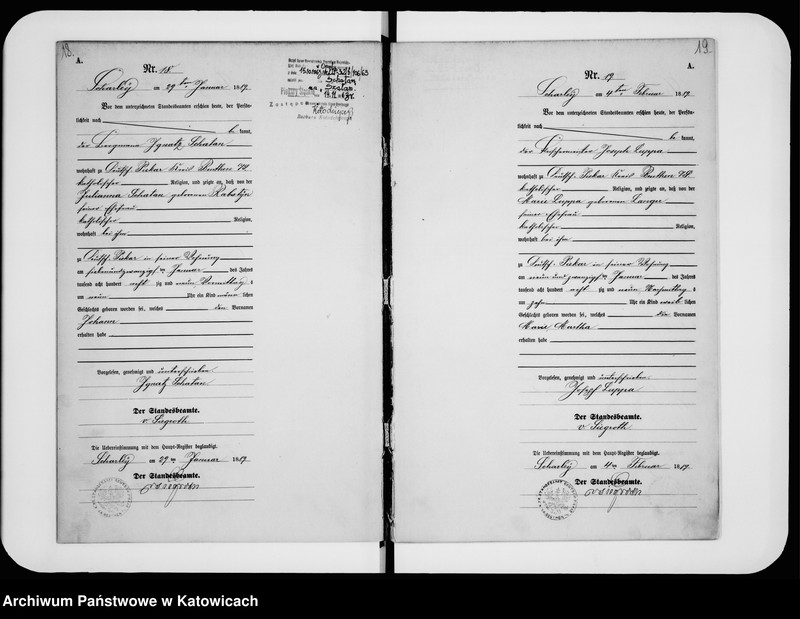 18.
A.
Nr. 18
Scharley am 29ten Januar 1889.
Vor dem unterzeichneten Standesbeamten erschien heute, der Persön-
lichkeit nach
be kannt,
der Bergmann Ignatz Schatan
wohnhaft zu Deutsch-Piekar Kreis Beuthen
katholischer Religion, und zeigte an, daß von der
Julianna Schatan geborenen
seiner Ehefrau
katholischer Religion,
wohnhaft bei ihm
zu Deutsch-Piekar in seiner Wohnung
am siebenundzwanzigsten Januar des Jahres
tausend acht hundert acht zig und neun Vormittag s
um neun Uhr ein Kind männ lichen
Geschlechts geboren worden sei, welches den Vornamen
Johann
erhalten habe
Vorgelesen, genehmigt und unterschrieben
Ignatz Schatan
Der Standesbeamte.
v Siegroth
Die Uebereinstimmung mit dem Haupt-Register beglaubigt.
Scharley am 29ten Januar 1889.
Der Standesbeamte.
v Siegroth
19.
A.
Nr. 19
Scharley am 4ten Februar 1889.
Vor dem unterzeichneten Standesbeamten erschien heute, der Persön-
lichkeit nach
be kannt,
der Joseph Luppa
wohnhaft zu Deutsch-Piekar Kreis Beuthen
katholischer Religion, und zeigte an, daß von der
Marie Luppa geborenen Langer
seiner Ehefrau
katholischer Religion,
wohnhaft bei ihm
zu Deutsch-Piekar in seiner Wohnung
am neun und zwanzigsten Januar des Jahres
tausend acht hundert acht zig und neun Nachmittag s
um zehn Uhr ein Kind weib lichen
Geschlechts geboren worden sei, welches die Vornamen
Marie Martha
erhalten habe
Vorgelesen, genehmigt und unterschrieben
Josef Luppa
Der Standesbeamte.
v Siegroth
Die Uebereinstimmung mit dem Haupt-Register beglaubigt.
Scharley am 4ten Februar 1889.
Der Standesbeamte.
v Siegroth
Archiwum Państwowe w Katowicach